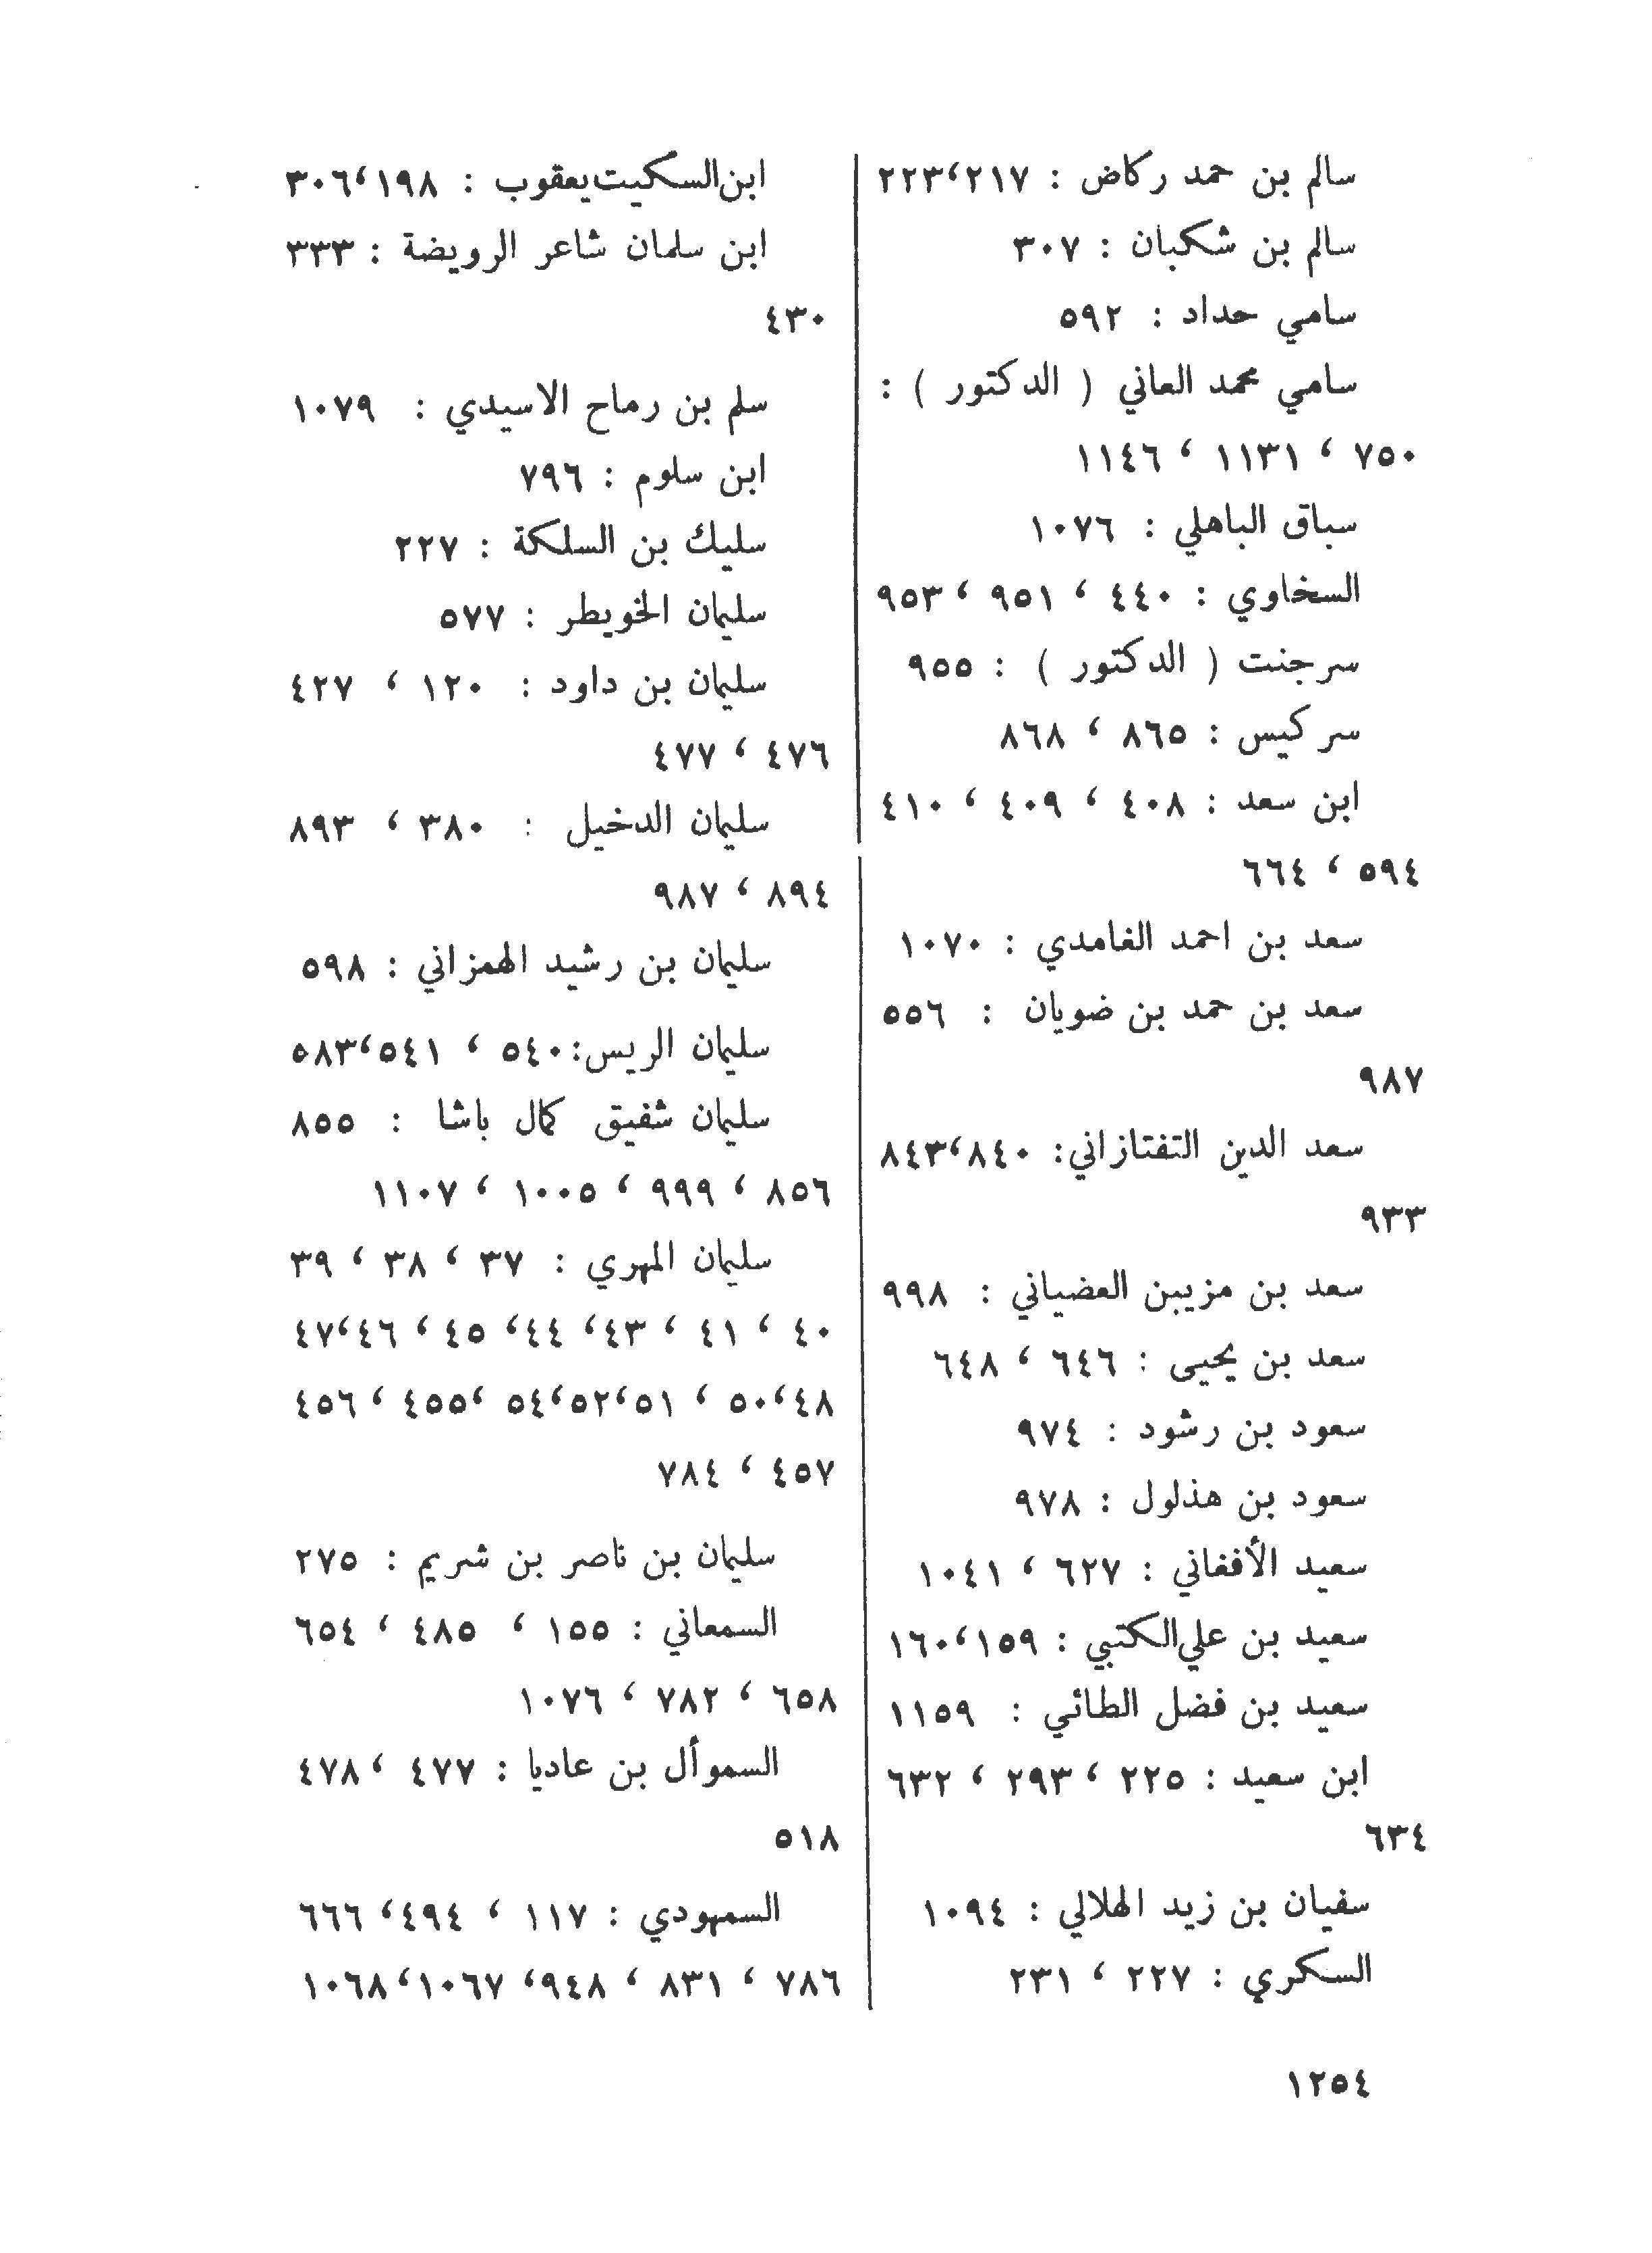 سالم بن حمد ركاض : ٢١٧، ٢٢٣
سالم بن شكبان : ٣٠٧
سامي حداد : ٥٩٢
سامي محمد العاني ( الدكتور ) :
٧٥٠ ، ١١٣١ ، ١١٤٦
سباق الباهلي : ١٠٧٦
السخاوي : ٤٤٠ ، ٩٥١ ، ٩٥٣
سرجنت ( الدكتور ) : ٩٥٥
سركيس : ٨٦٥ ، ٨٦٨
ابن سعد : ٤٠٨ ، ٤٠٩ ، ٤١٠
٥٩٤ ، ٦٦٤
سعد بن احمد الغامدي : ١٠٧٠
سعد بن حمد بن ضويان : ٥٥٦
٩٨٧
سعد الدين التفتازاني: ٨٤٠، ٨٤٣
٩٣٣
سعد بن مزيبن العضياني : ٩٩٨
سعد بن يحيى : ٦٤٦ ، ٦٤٨
سعود بن رشود : ٩٧٤
سعود بن هذلول : ٩٧٨
سعيد الأفغاني : ٦٢٧ ، ١٠٤١
سعيد بن علي الكتبي : ١٥٩، ١٦٠
سعيد بن فضل الطائي : ١١٥٩
ابن سعيد : ٢٢٥ ، ٢٩٣ ، ٦٣٢
٦٣٤
سفيان بن زيد الهلالي : ١٠٩٤
السكري : ٢٢٧ ، ٢٣١
ابن السكيت يعقوب : ١٩٨، ٣٠٦
ابن سلمان شاعر الرويضة : ٣٣٣
٤٣٠
سلم بن رماح الاسيدي : ١٠٧٩
ابن سلوم : ٧٩٦
سليك بن السلكة : ٢٢٧
سليمان الخويطر : ٥٧٧
سليمان بن داود : ١٢٠ ، ٤٢٧
٤٧٦ ، ٤٧٧
سليمان الدخيل : ٣٨٠ ، ٨٩٣
٨٩٤ ، ٩٨٧
سليمان بن رشيد الهمزاني : ٥٩٨
سليمان الريس: ٥٤٠ ، ٥٤١، ٥٨٣
سليمان شفيق كمال باشا : ٨٥٥
٨٥٦ ، ٩٩٩ ، ١٠٠٥ ، ١١٠٧
سليمان المهري : ٣٧ ، ٣٨ ، ٣٩
٤٠ ، ٤١ ، ٤٣ ، ٤٤ ، ٤٥ ، ٤٦، ٤٧
٤٨، ٥٠ ، ٥١، ٥٢، ٥٤ ، ٤٥٥ ، ٤٥٦
٤٥٧ ، ٧٨٤
سليمان بن ناصر بن شريم : ٢٧٥
السمعاني : ١٥٥ ، ٤٨٥ ، ٦٥٤
٦٥٨ ، ٧٨٢ ، ١٠٧٦
السموأل بن عاديا : ٤٧٧ ، ٤٧٨
٥١٨
السمهودي : ١١٧ ، ٤٩٤ ، ٦٦٦
٧٨٦ ، ٨٣١ ، ٩٤٨ ، ١٠٦٧، ١٠٦٨
١٢٥٤